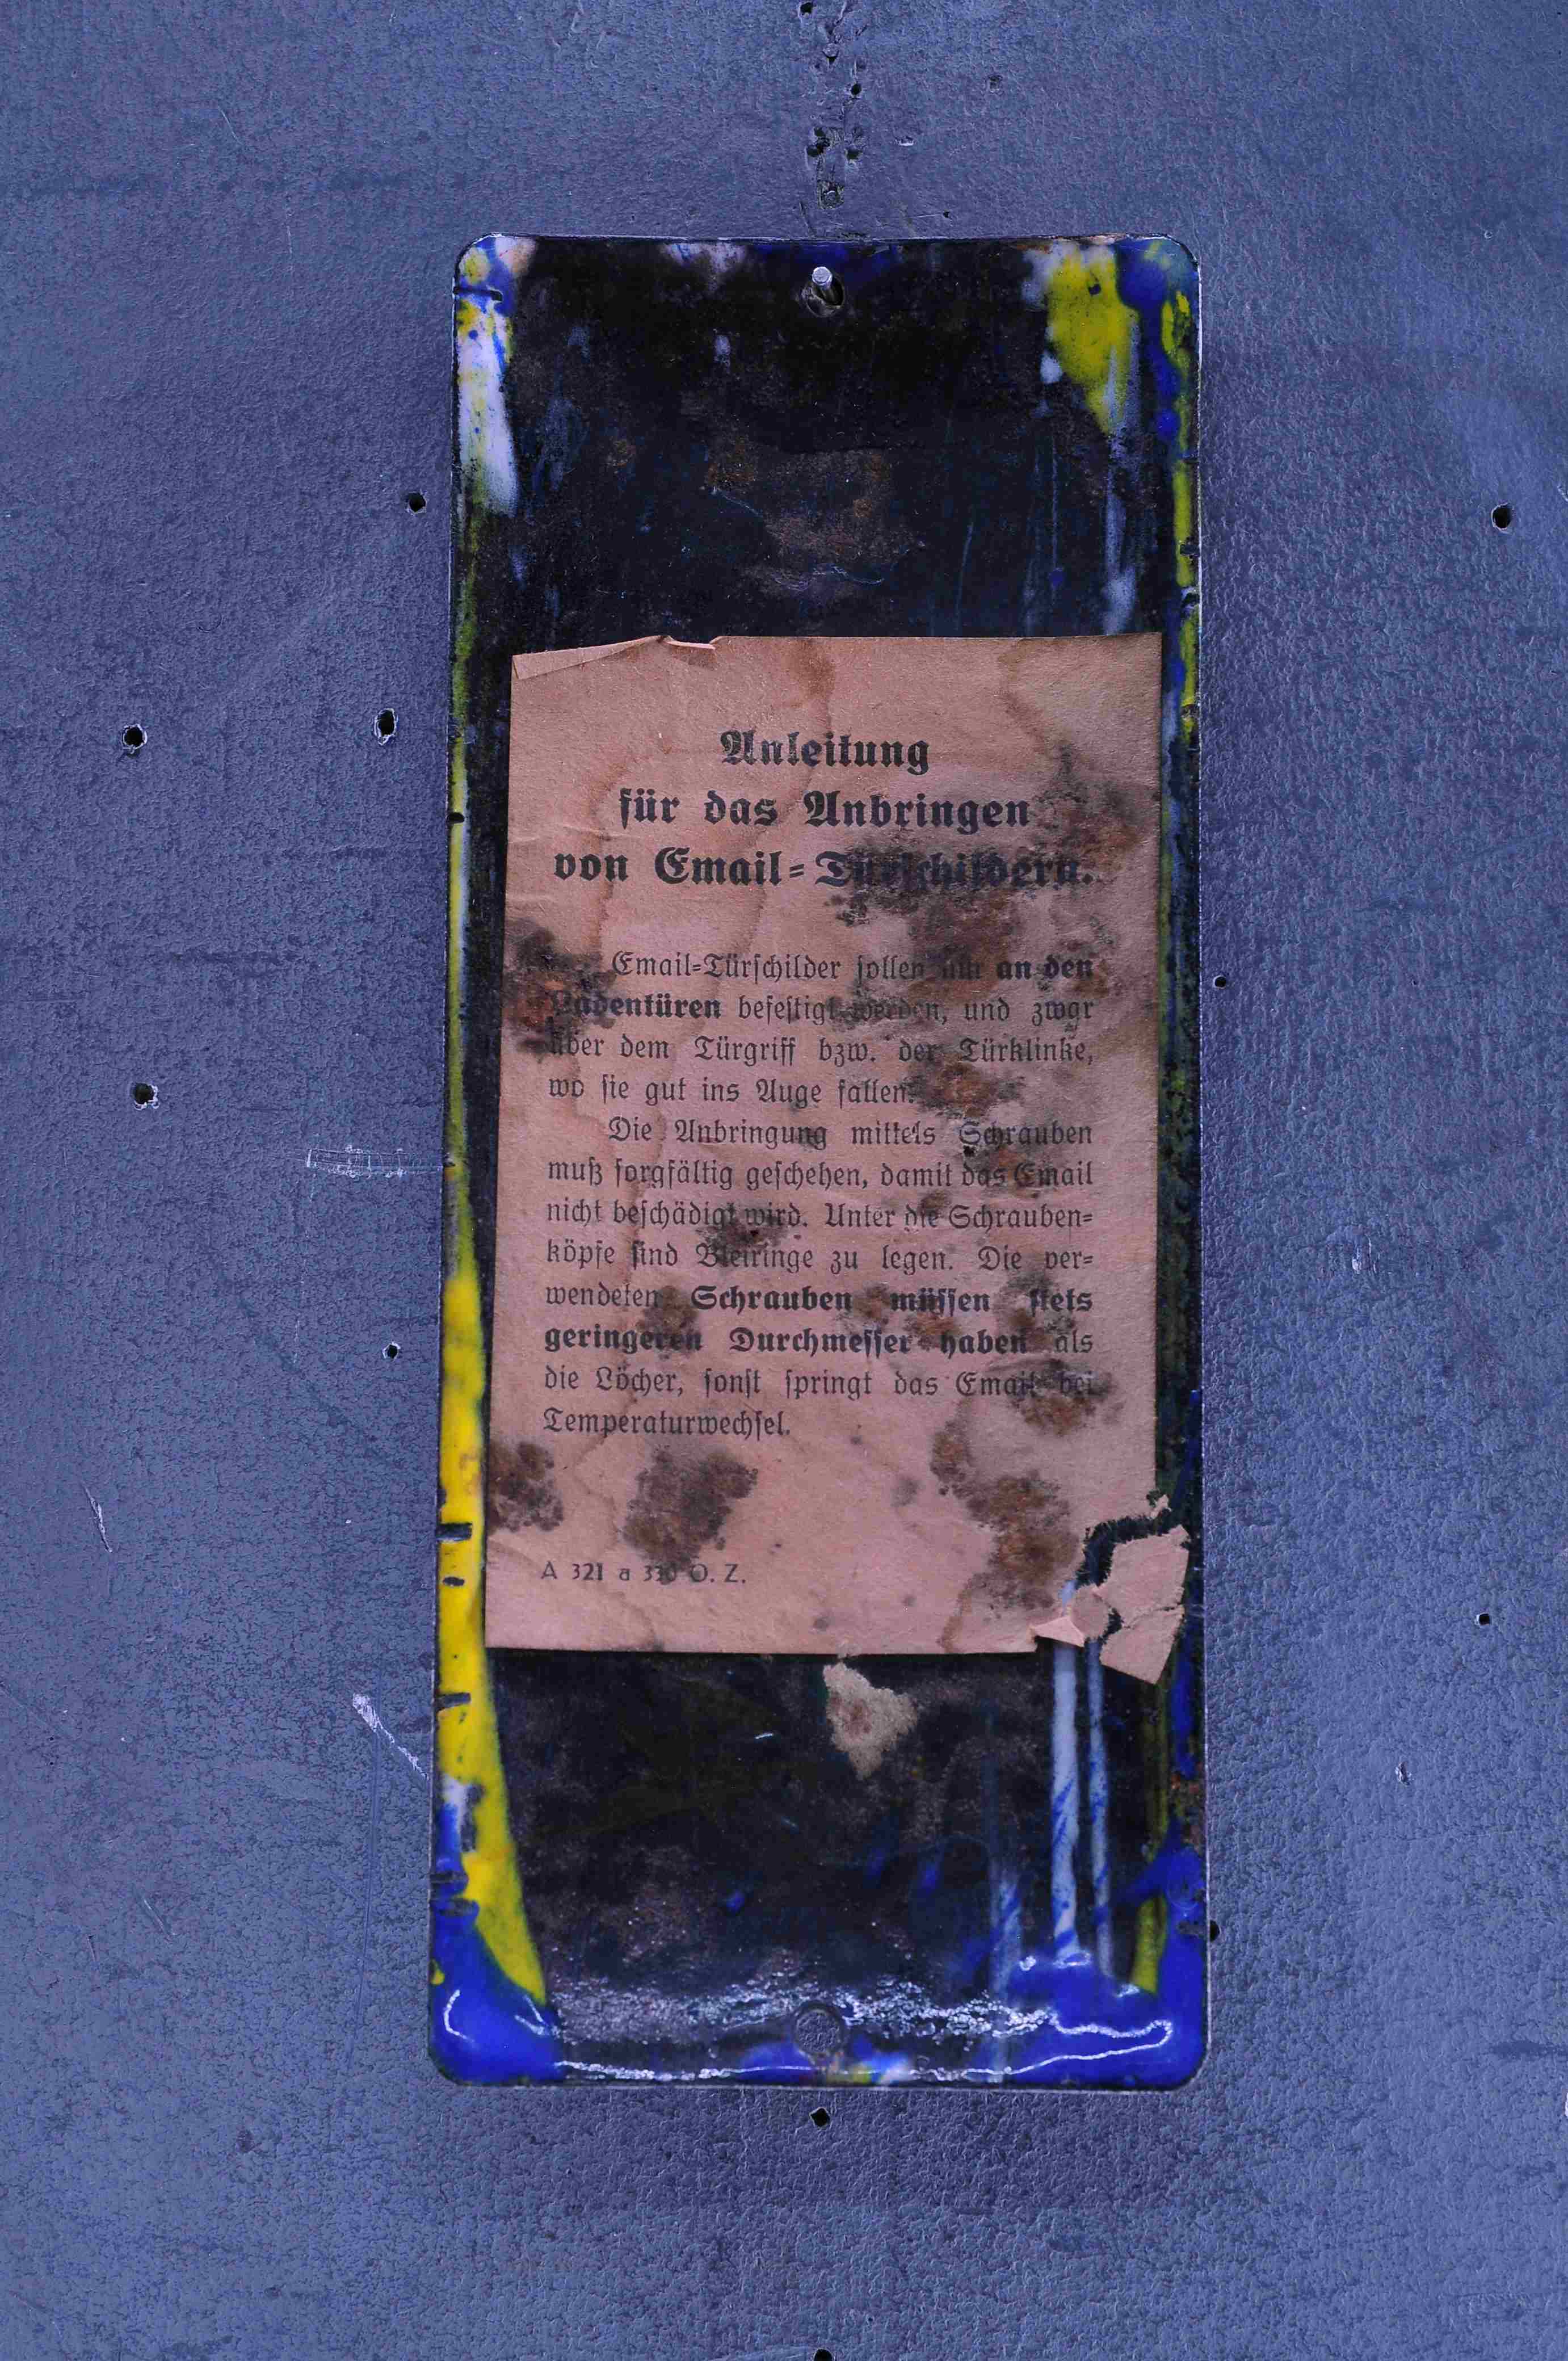 Anleitung
für das Anbringen
von Email=Türschildern.
Email=Türschilder sollen nur an den
Ladentüren befestigt werden, und zwar
über dem Türgriff bzw. der Türklinke,
wo sie gut ins Auge fallen.
Die Anbringung mittels Schrauben
muß sorgfältig geschehen, damit das Email
nicht beschädigt wird. Unter die Schrauben=
köpfe sind Bleiringe zu legen. Die ver=
wendeten Schrauben müssen stets
geringeren Durchmesser haben als
die Löcher, sonst springt das Email bei
Temperaturwechsel.
A 321 a O. Z.